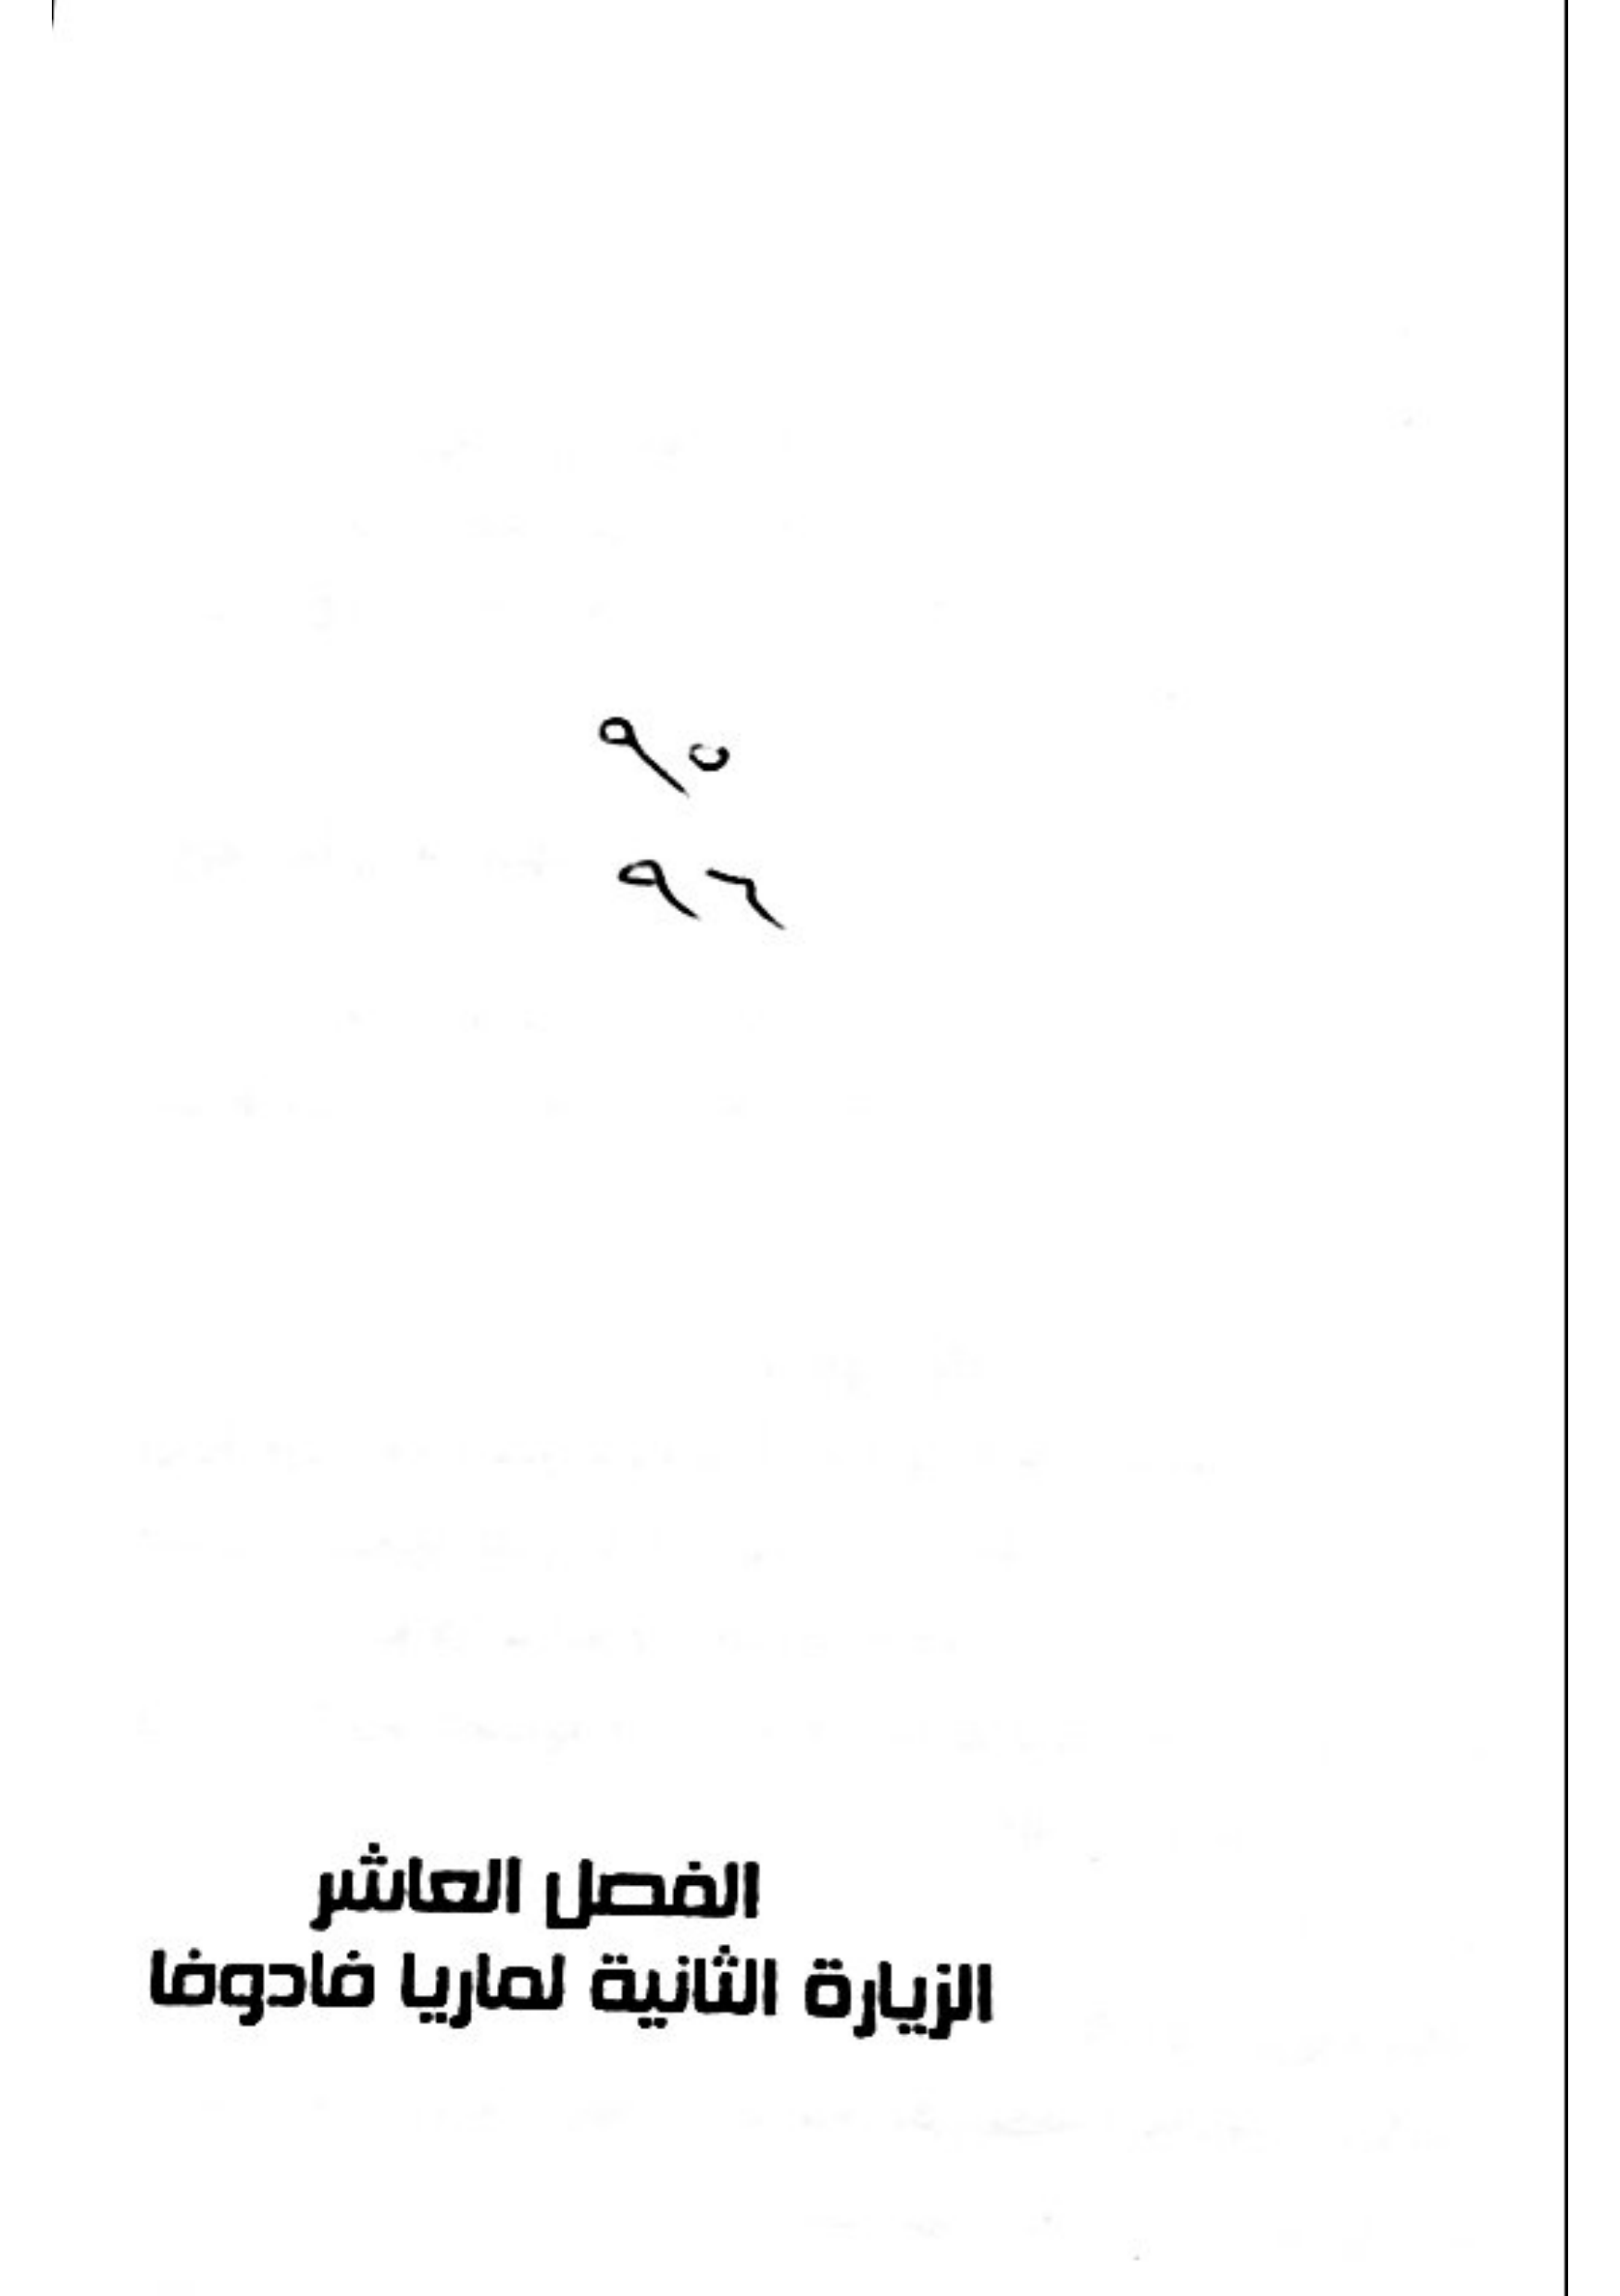 ٩٥
٩٦
الفصل العاشر
الزيارة الثانية لماريا فادوفا